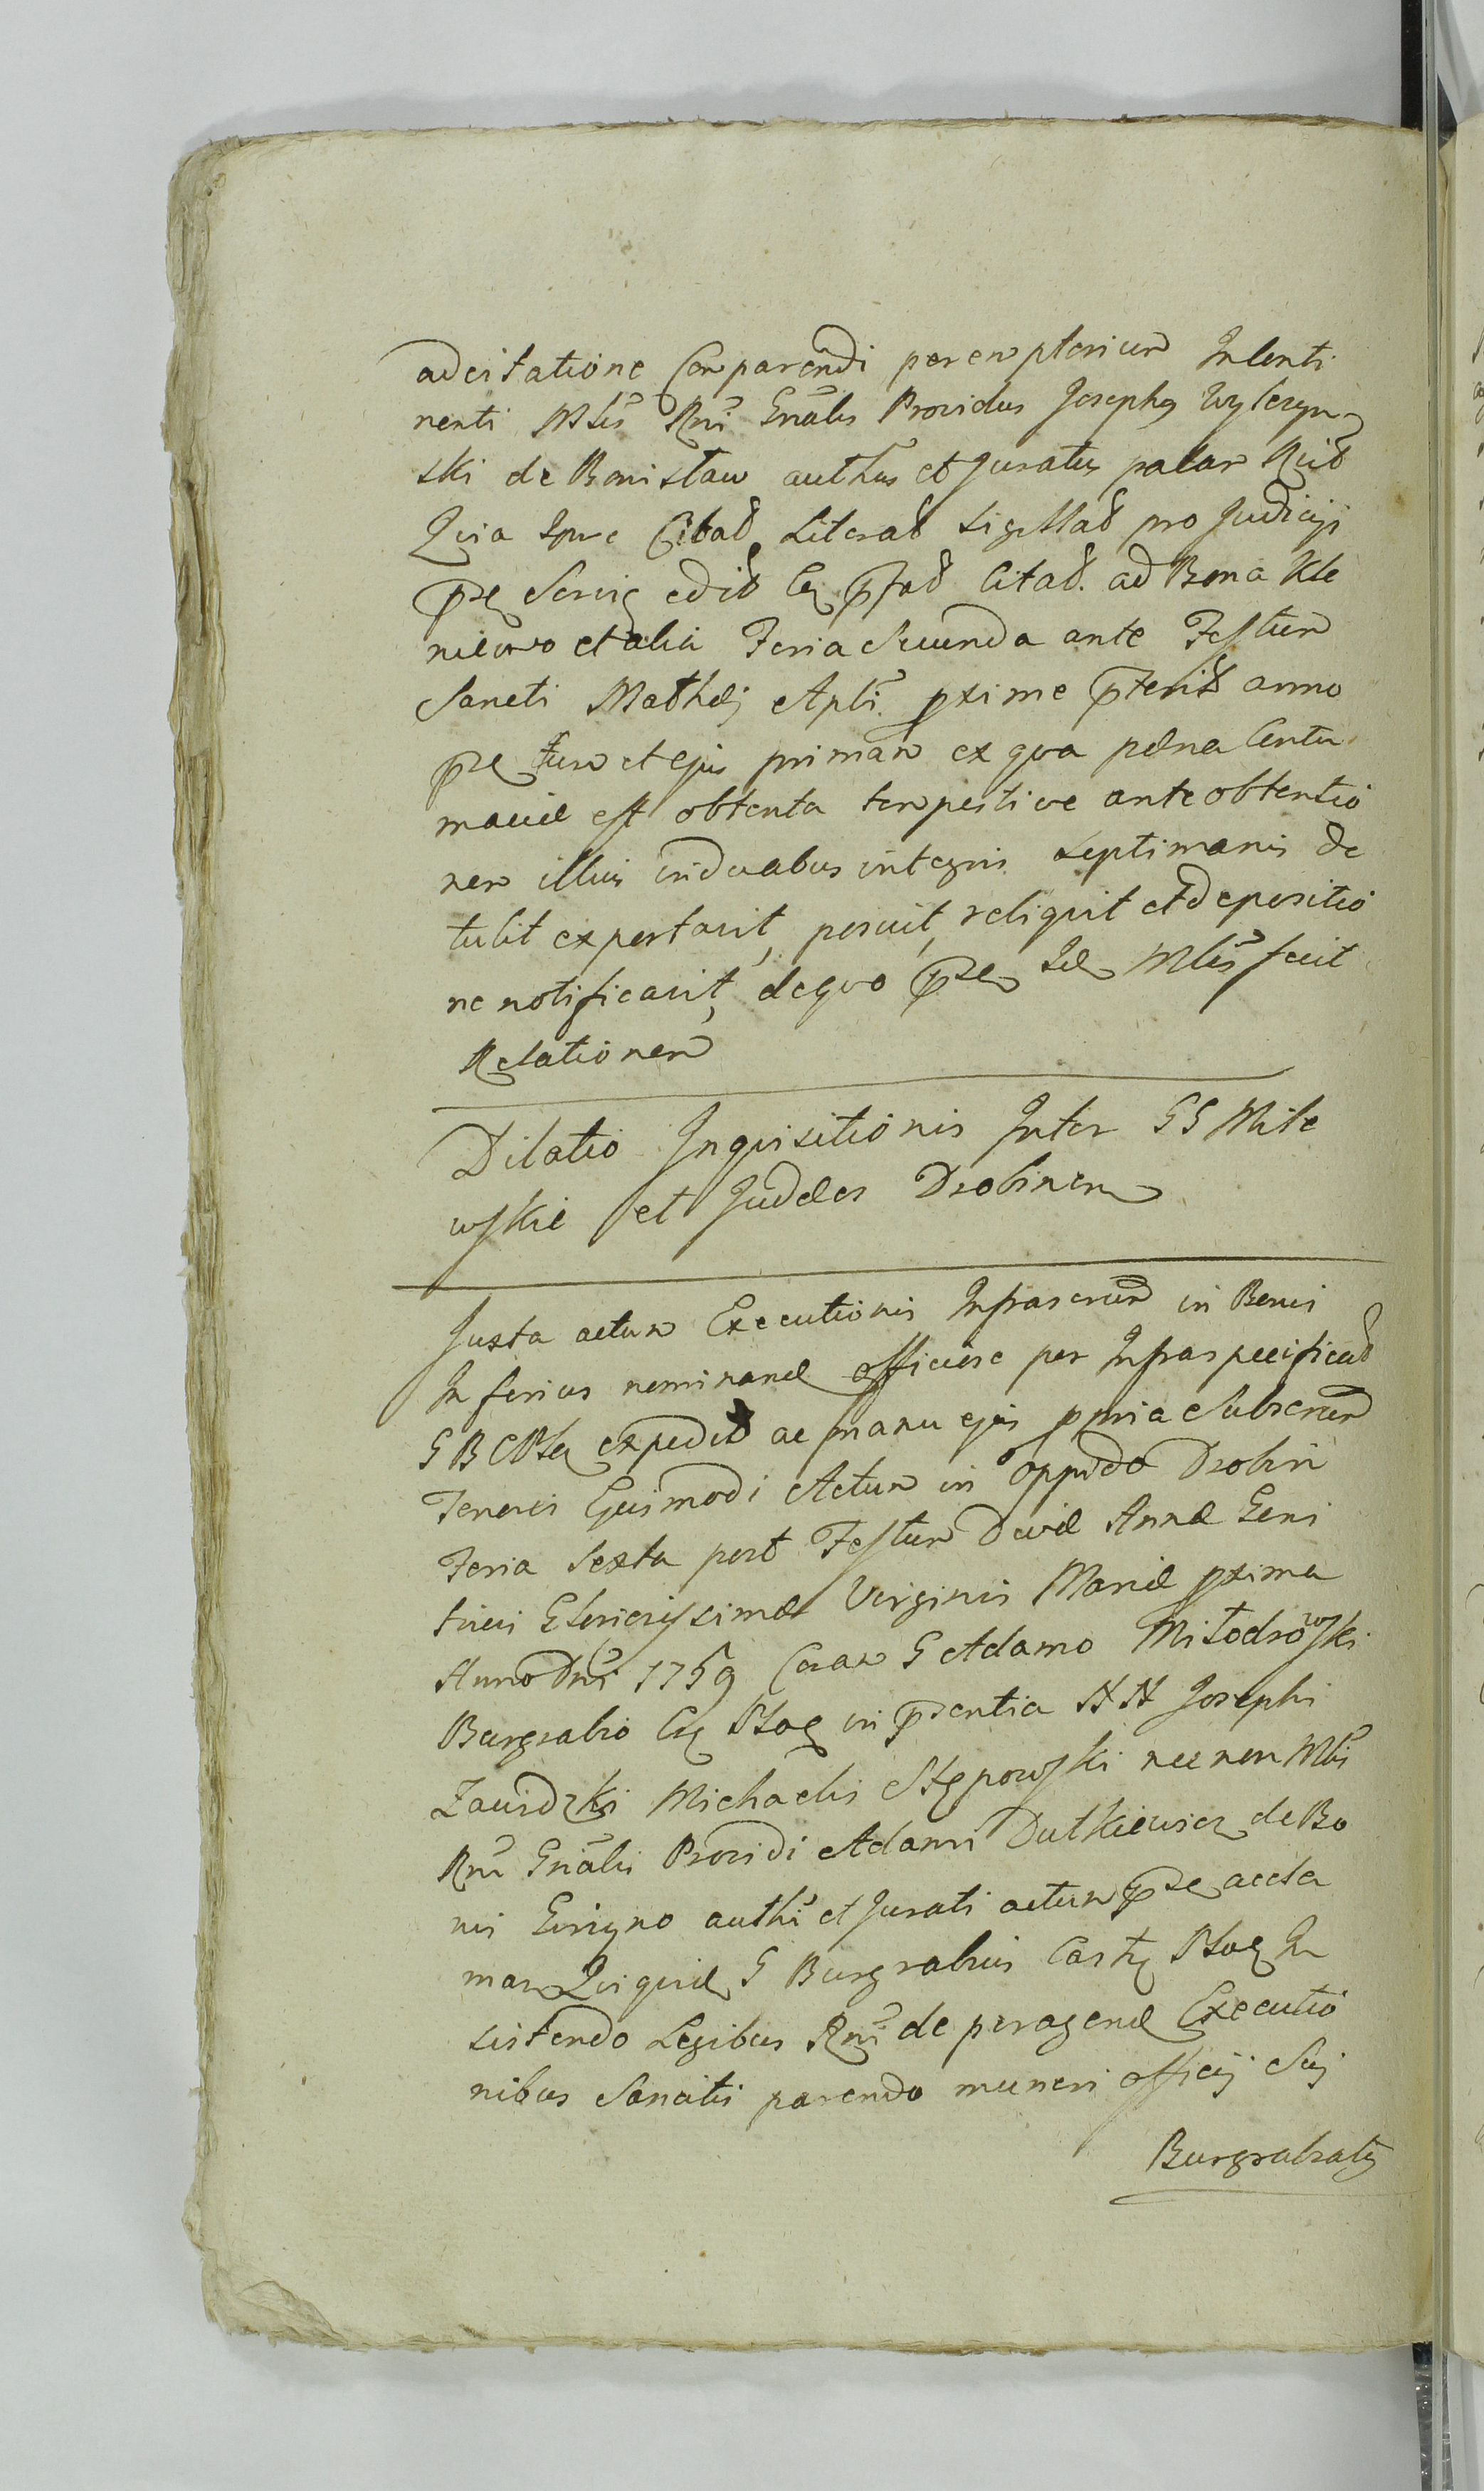 adcitatione Comparendi peremptorium Intenti
nenti Mlis Rni Gnalis Providus Josephg
ski de Bonisław authus et Juratus palam
Quia Citad Literad Sigillad pro Judicij
edid Citad. ad Bona Kle
niewo et alia Feria Secunda ante Festum
Sancti Mathej Apli pxime pterit anno
et ejus primam ex qva pdna Contu
macie est obtenta tempestive ante obtentio
nem illius induabus integris Septimanis de
tulit exportavit, posuit, reliqvit et depositio
ne notificavit, deqvo Mlis fecit
Relationem
Dilatio Inqvisitionis Inter GG Mile
wskie et Judeos Drobinen
Juxta actum Executionis Infrascrm in Bonis
Inferius nominand officiose per Infraspecificad
G B C expedit ac manu ejus ppria Subscrm
Tenoris Ejusmodi Actum in Oppido Drobin
Feria Sexta post Festum Divæ Annæ Geni
tricis Gloriosissimæ Virginis Mariæ pxima
Anno Dni 1759 Coram G Adamo Miłodrowski
Burgrabio Plog in psentia NN Josephi
Zawidzki Michaelis Stępowski nec non Mlis
Rni Gnalis Providi Adami Dutkiewicz de Bo
nis authi et Jurati actum accla
mam Quiqvid G Burgrabius Castr Plog In
sistendo Legibus Rni de peragend Executio
nibus Sancitis parendo muneri officij Suj
Burgrabiatg